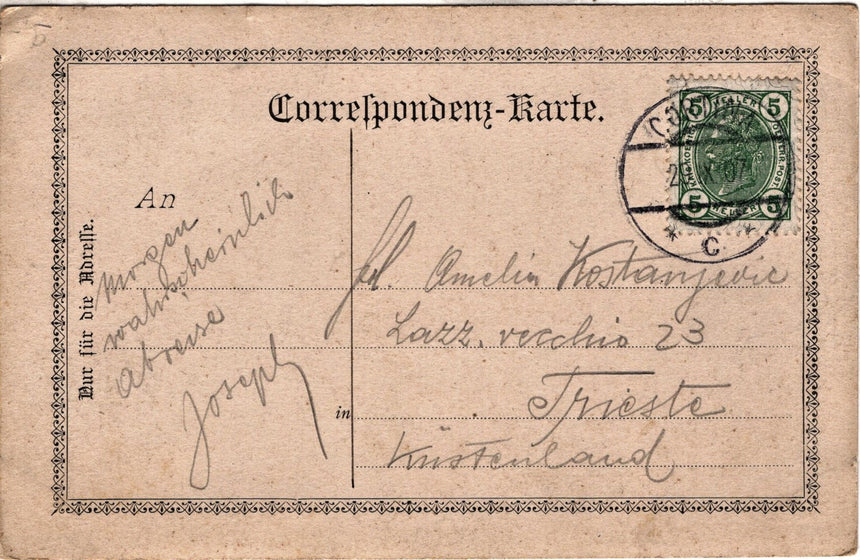 Correſpondenz-Karte.
5 HELLER 5
5 HELLER 5
29 X 07
* C *
An
Nur für die Adreſſe.
Morgen
wahrscheinlich
Abreise
Joseph
Frl. Amelia Kostanjevic
Lazz. vecchio 23
in Trieste
Küstenland